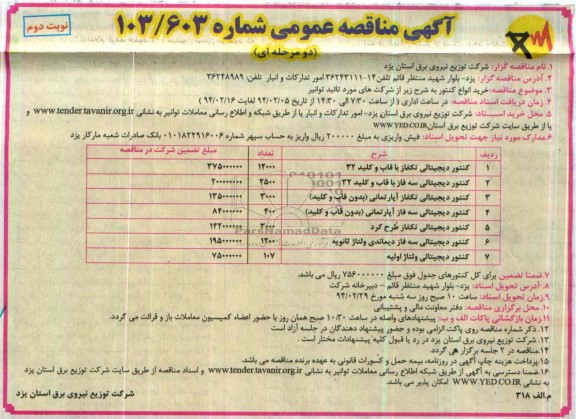 آگهی مناقصه عمومی شماره ۱۰۳/۶۰۳
(دو مرحله ای)
نوبت دوم
۱.نام مناقصه گزار: شرکت توزیع نیروی برق استان یزد
۲. آدرس مناقصه گزار: یزد- بلوار شهید منتظر قائم تلفن:۱۴-۳۶۲۴۳۱۱۱ امور تدارکات و انبار تلفن: ۳۶۲۴۸۹۸۹
۳. موضوع مناقصه: خرید انواع کنتور به شرح زیر از شرکت های مورد تائید توانیر
۴. زمان دریافت اسناد مناقصه: در ساعت اداری ( از ساعت ۷/۳۰ الی ۱۴/۳۰ از تاریخ ۹۴/۰۲/۰۵ لغایت ۹۴/۰۲/۱۶ )
۵. محل خرید اسناد: شرکت توزیع نیروی برق استان یزد- امور تدارکات و انبار یا از طریق شبکه و اطلاع رسانی معاملات توانیر به نشانی www.tender.tavanir.org.ir و
یا از طریق سایت شرکت توزیع برق استان WWW.YED.CO.IR
۶.مدارک مورد نیاز جهت تحویل اسناد: فیش واریزی به مبلغ ۲۰۰۰۰۰ ریال واریز به حساب سپهر شماره ۰۱۰۱۸۲۲۹۱۶۰۰۶ بانک صادرات شعبه مارکار یزد
ردیف شرح تعداد مبلغ تضمین شرکت در مناقصه
۱ کنتور دیجیتالی تکفاز با قاب و کلید ۳۲ ۱۲۰۰۰ ۳۷۵۰۰۰۰۰۰
۲ کنتور دیجیتالی سه فاز با قاب و کلید ۳۲ ۲۵۰۰ ۲۰۰۰۰۰۰۰۰
۳ کنتور دیجیتالی تکفاز آپارتمانی (بدون قاب و کلید) ۳۰۰۰ ۱۳۵۰۰۰۰۰۰
۴ کنتور دیجیتالی سه فاز آپارتمانی (بدون قاب و کلید) ۴۰۰ ۸۴۰۰۰۰۰۰
۵ کنتور دیجیتالی تکفاز طرح کرد ۳۰۰۰ ۱۴۲۰۰۰۰۰۰
۶ کنتور دیجیتالی سه فاز دیماندی ولتاژ ثانویه ۱۲۰۰ ۱۹۵۰۰۰۰۰۰
۷ کنتور دیجیتالی ولتاژ اولیه ۱۰۷ ۷۵۰۰۰۰۰۰
ParsNamadData
۷.ضمنا تضمین برای کل کنتورهای جدول فوق مبلغ ۷۵۶۰۰۰۰۰۰ ریال می باشد.
۸. آدرس تحویل اسناد: یزد- بلوار شهید منتظر قائم – دبیرخانه شرکت
۹.زمان تحویل اسناد: ساعت ۱۰ صبح روز سه شنبه مورخ ۹۴/۰۲/۲۹
۱۰. محل برگزاری مناقصه: دفتر معاونت مالی و پشتیبانی
۱۱.زمان بازگشائی پاکات الف و ب: پیشنهادهای واصله در ساعت ۱۰/۳۰ صبح همان روز با حضور اعضاء کمیسیون معاملات باز و قرائت می گردد.
۱۲. ذکر شماره مناقصه روی پاکت الزامی بوده و حضور پیشنهاد دهندگان در جلسه آزاد است
۱۳. شرکت توزیع نیروی برق استان یزد در رد یا قبول کلیه پیشنهادات مختار است .
۱۴.مناقصه در ۲ جلسه برگزار می گردد.
۱۵.پرداخت هزینه چاپ آگهی در روزنامه، بیمه حمل و کسورات قانونی به عهده برنده مناقصه می باشد.
۱۶.ضمنا دسترسی به آگهی از طریق شبکه اطلاع رسانی معاملات توانیر به نشانی www.tender.tavanir.org.ir و اسناد مناقصه از طریق سایت شرکت توزیع برق استان یزد
به نشانی WWW.YED.CO.IR امکان پذیر می باشد.
م.الف ۳۱۸
شرکت توزیع نیروی برق استان یزد